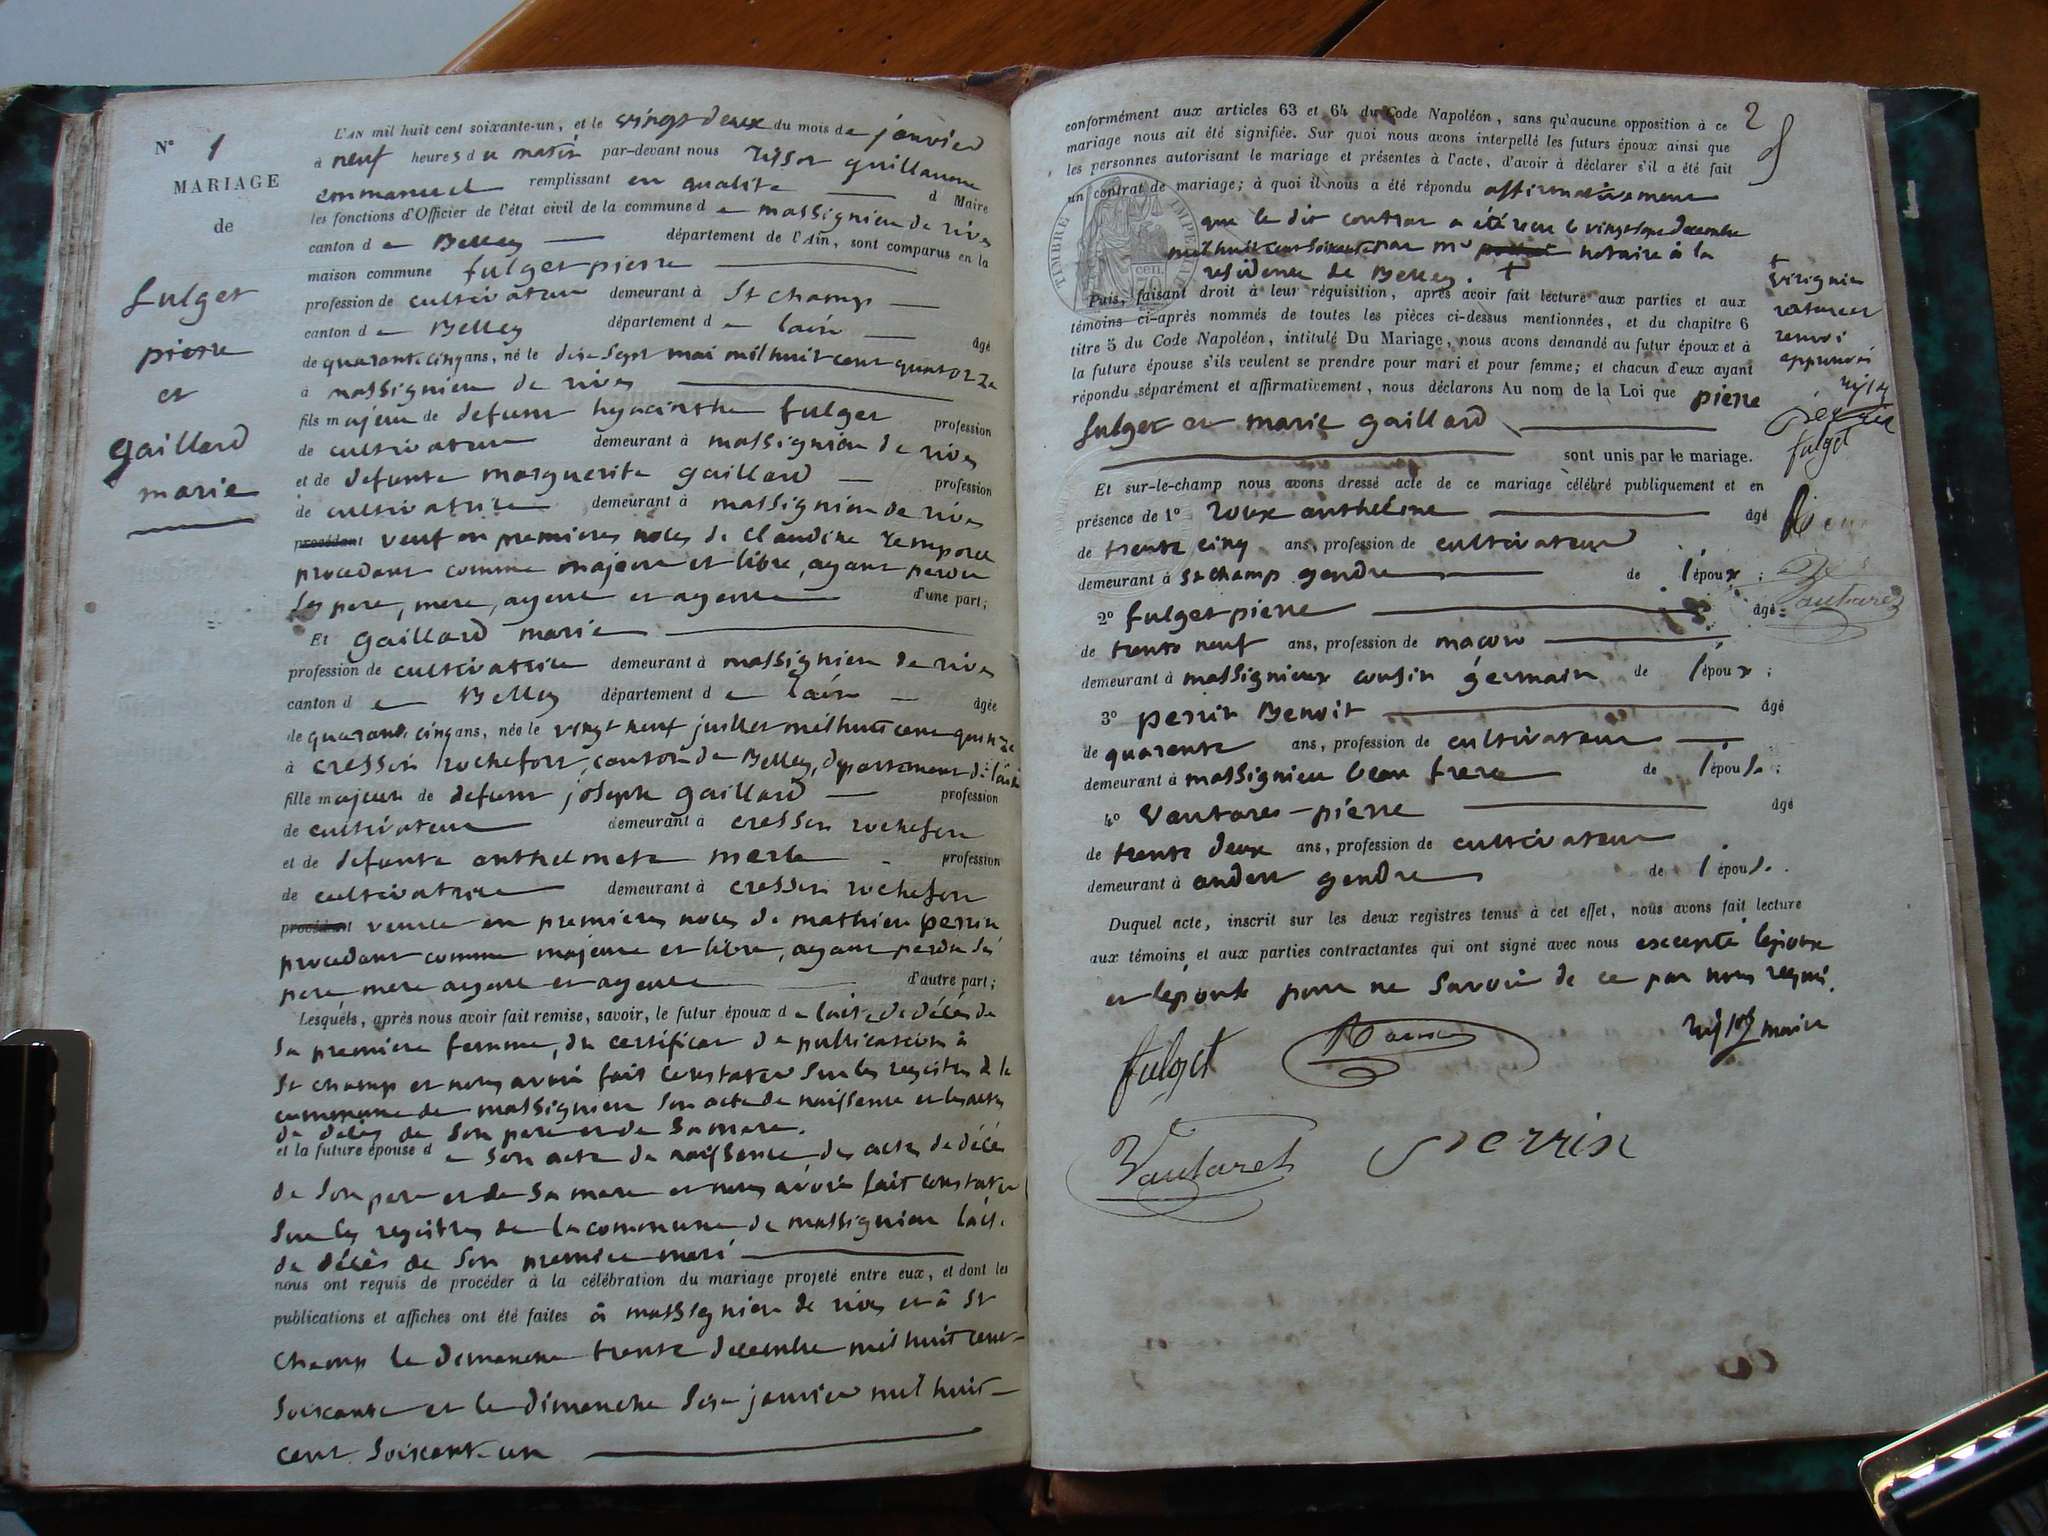 N° 1
MARIAGE
de
fulget
pierre
et
gaillard
marie
L'AN mil huit cent soixante-un, et le vingt deux du mois de janvier
à neuf heures du matin par-devant nous guillaume
emmanuel remplissant en qualité d Maire
les fonctions d'Officier de l'état civil de la commune de massignieu de rives
canton de Belley département de l'Ain, sont comparus en la
maison commune fulget pierre
profession de cultivateur demeurant à St champ
canton de Belley département de lain âgé
de quarante cinq ans, né le dixe sept mai mil huit cent quatorze
à massignieu de rives
fils majeur de defunt hyacinthe fulget profession
de cultivateur demeurant à massignieu de rives
et de defunte marguerite gaillard profession
de cultivatrice demeurant à massignieu de rives
procédant veuf en premieres noces de claudine
procedant comme majeur et libre, ayant perdu
ses pere, mere, ayeux et ayeules d'une part;
Et gaillard marie
profession de cultivatrice demeurant à massignieu de rives
canton de Belley département de lain âgée
de quarante cinq ans, née le vingt neuf juillet mil huit cent quinze
à cressin rochefort, canton de Belley, departement de lain
fille majeure de defunt joseph gaillard profession
de cultivateur demeurant à cressin rochefort
et de defunte anthelmete merle profession
de cultivatrice demeurant à cressin rochefort
procédant veuve en premieres noces de mathieu perrin
procedant comme majeure et libre, ayant perdu ses
pere mere ayeux et ayeules d'autre part;
Lesquels, après nous avoir fait remise, savoir, le futur époux de lacte de décès de
sa premiere femme, du certificat de publication à
St champ et nous avoir fait constater sur les registres de la
commune de massignieu son acte de naissence et les actes
de décès de son pere et de sa mere.
et la future épouse de son acte de naissence des actes de décè
de son pere et de sa mere et nous avoir fait constater
sur les registres de la commune de massignieu lact.
de décès de son premier mari
nous ont requis de procéder à la célébration du mariage projeté entre eux, et dont les
publications et affiches ont été faites à massignieu de rives et à St
champ le dimanche trente decembre mil huit cent
soixante et le dimanche sixe janvier mil huit
cent soixante un
2
conformément aux articles 63 et 64 du Code Napoléon, sans qu'aucune opposition à ce
mariage nous ait été signifiée. Sur quoi nous avons interpellé les futurs époux ainsi que
les personnes autorisant le mariage et présentes à l'acte, d'avoir à déclarer s'il a été fait
un contrat de mariage; à quoi il nous a été répondu affirmativement
que le dit contrat a été recu le vingt sept decembre
mil huit cent soixante par me notaire à la
residence de Belley. +
TIMBRE IMPERIAL
cen.
+
virignin
raturer
renvoi
approuvés
perrin
fulget
Puis, faisant droit à leur réquisition, après avoir fait lecture aux parties et aux
témoins ci-après nommés de toutes les pièces ci-dessus mentionnées, et du chapitre 6
titre 5 du Code Napoléon, intitulé Du Mariage, nous avons demandé au futur époux et à
la future épouse s'ils veulent se prendre pour mari et pour femme; et chacun d'eux ayant
répondu séparément et affirmativement, nous déclarons Au nom de la Loi que pierre
fulget et marie gaillard
sont unis par le mariage.
Et sur-le-champ nous avons dressé acte de ce mariage célébré publiquement et en
présence de 1° roux anthelme âgé
de trente cinq ans, profession de cultivateur
demeurant à St champ gendre de l'époux;
2° fulget pierre âgé
de trente neuf ans, profession de maçon
demeurant à massignieux cousin germain de l'époux;
3° perrin Benoit âgé
de quarente ans, profession de cultivateur
demeurant à massignieu beau frere de l'épouse;
4° Vautares pierre âgé
de trente deux ans, profession de cultivateur
demeurant à andert gendre de l'épouse.
Duquel acte, inscrit sur les deux registres tenus à cet effet, nous avons fait lecture
aux témoins et aux parties contractantes qui ont signé avec nous excepté lepoux
et lepouse pour ne savoir de ce par nous requis.
maire
fulget
Vautaret perrin